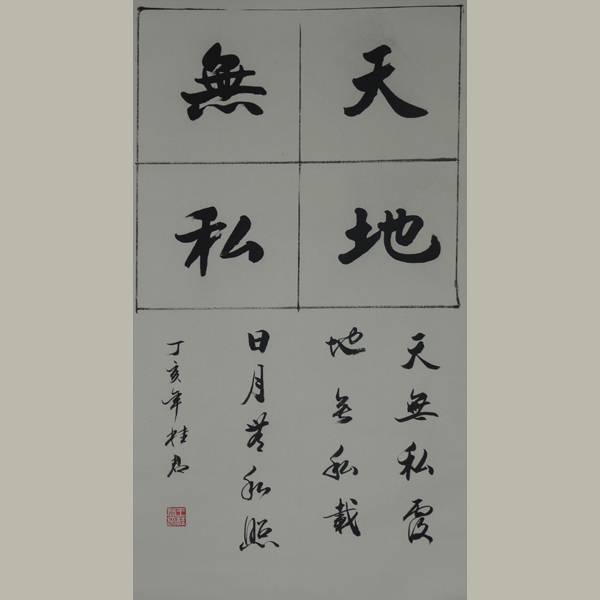 天地
無私
天無私覆
地無私載
日月無私照
丁亥年桂